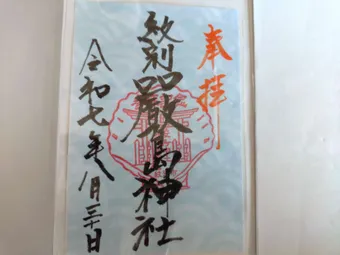 奉拝
厳島神社
令和七年八月三十日